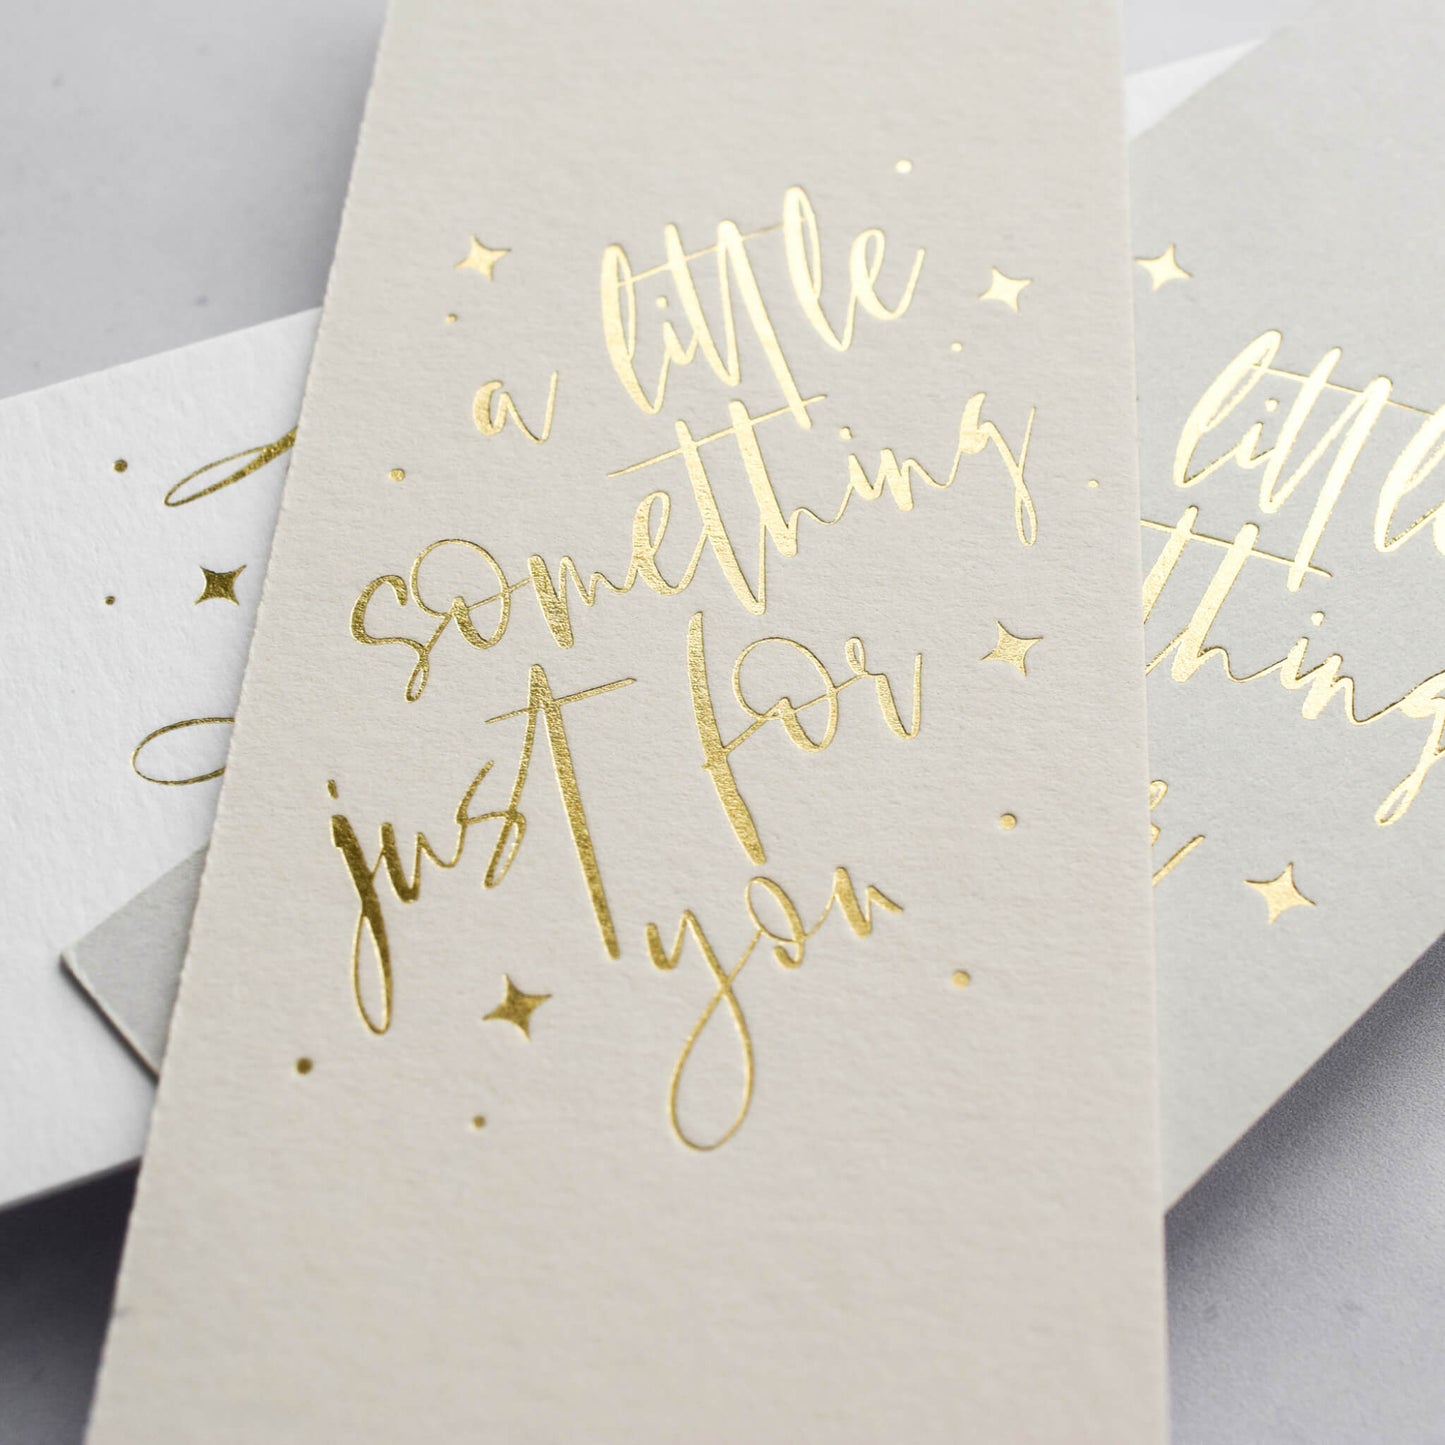 a little
something
just for
you
little
thing